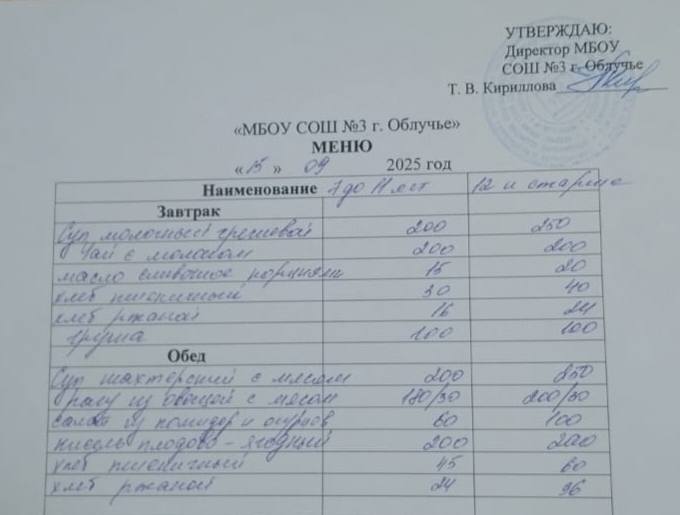 УТВЕРЖДАЮ:
Директор МБОУ
СОШ №3 г. Облучье
Т. В. Кириллова
«МБОУ СОШ №3 г. Облучье»
МЕНЮ
«15» 09 2025 год
Наименование 7 до 11 лет 12 и старше
Завтрак
Суп молочный гречневой 200 250
Чай с молоком 200 200
масло сливочное порциями 15 20
хлеб пшеничный 30 40
хлеб ржаной 16 24
груша 100 100
Обед
Суп шахтерский с мясом 200 250
рагу из овощей с мясом 180/30 200/30
салат из помидор и огурцов 60 100
кисель плодово-ягодный 200 200
хлеб пшеничный 45 60
хлеб ржаной 24 36